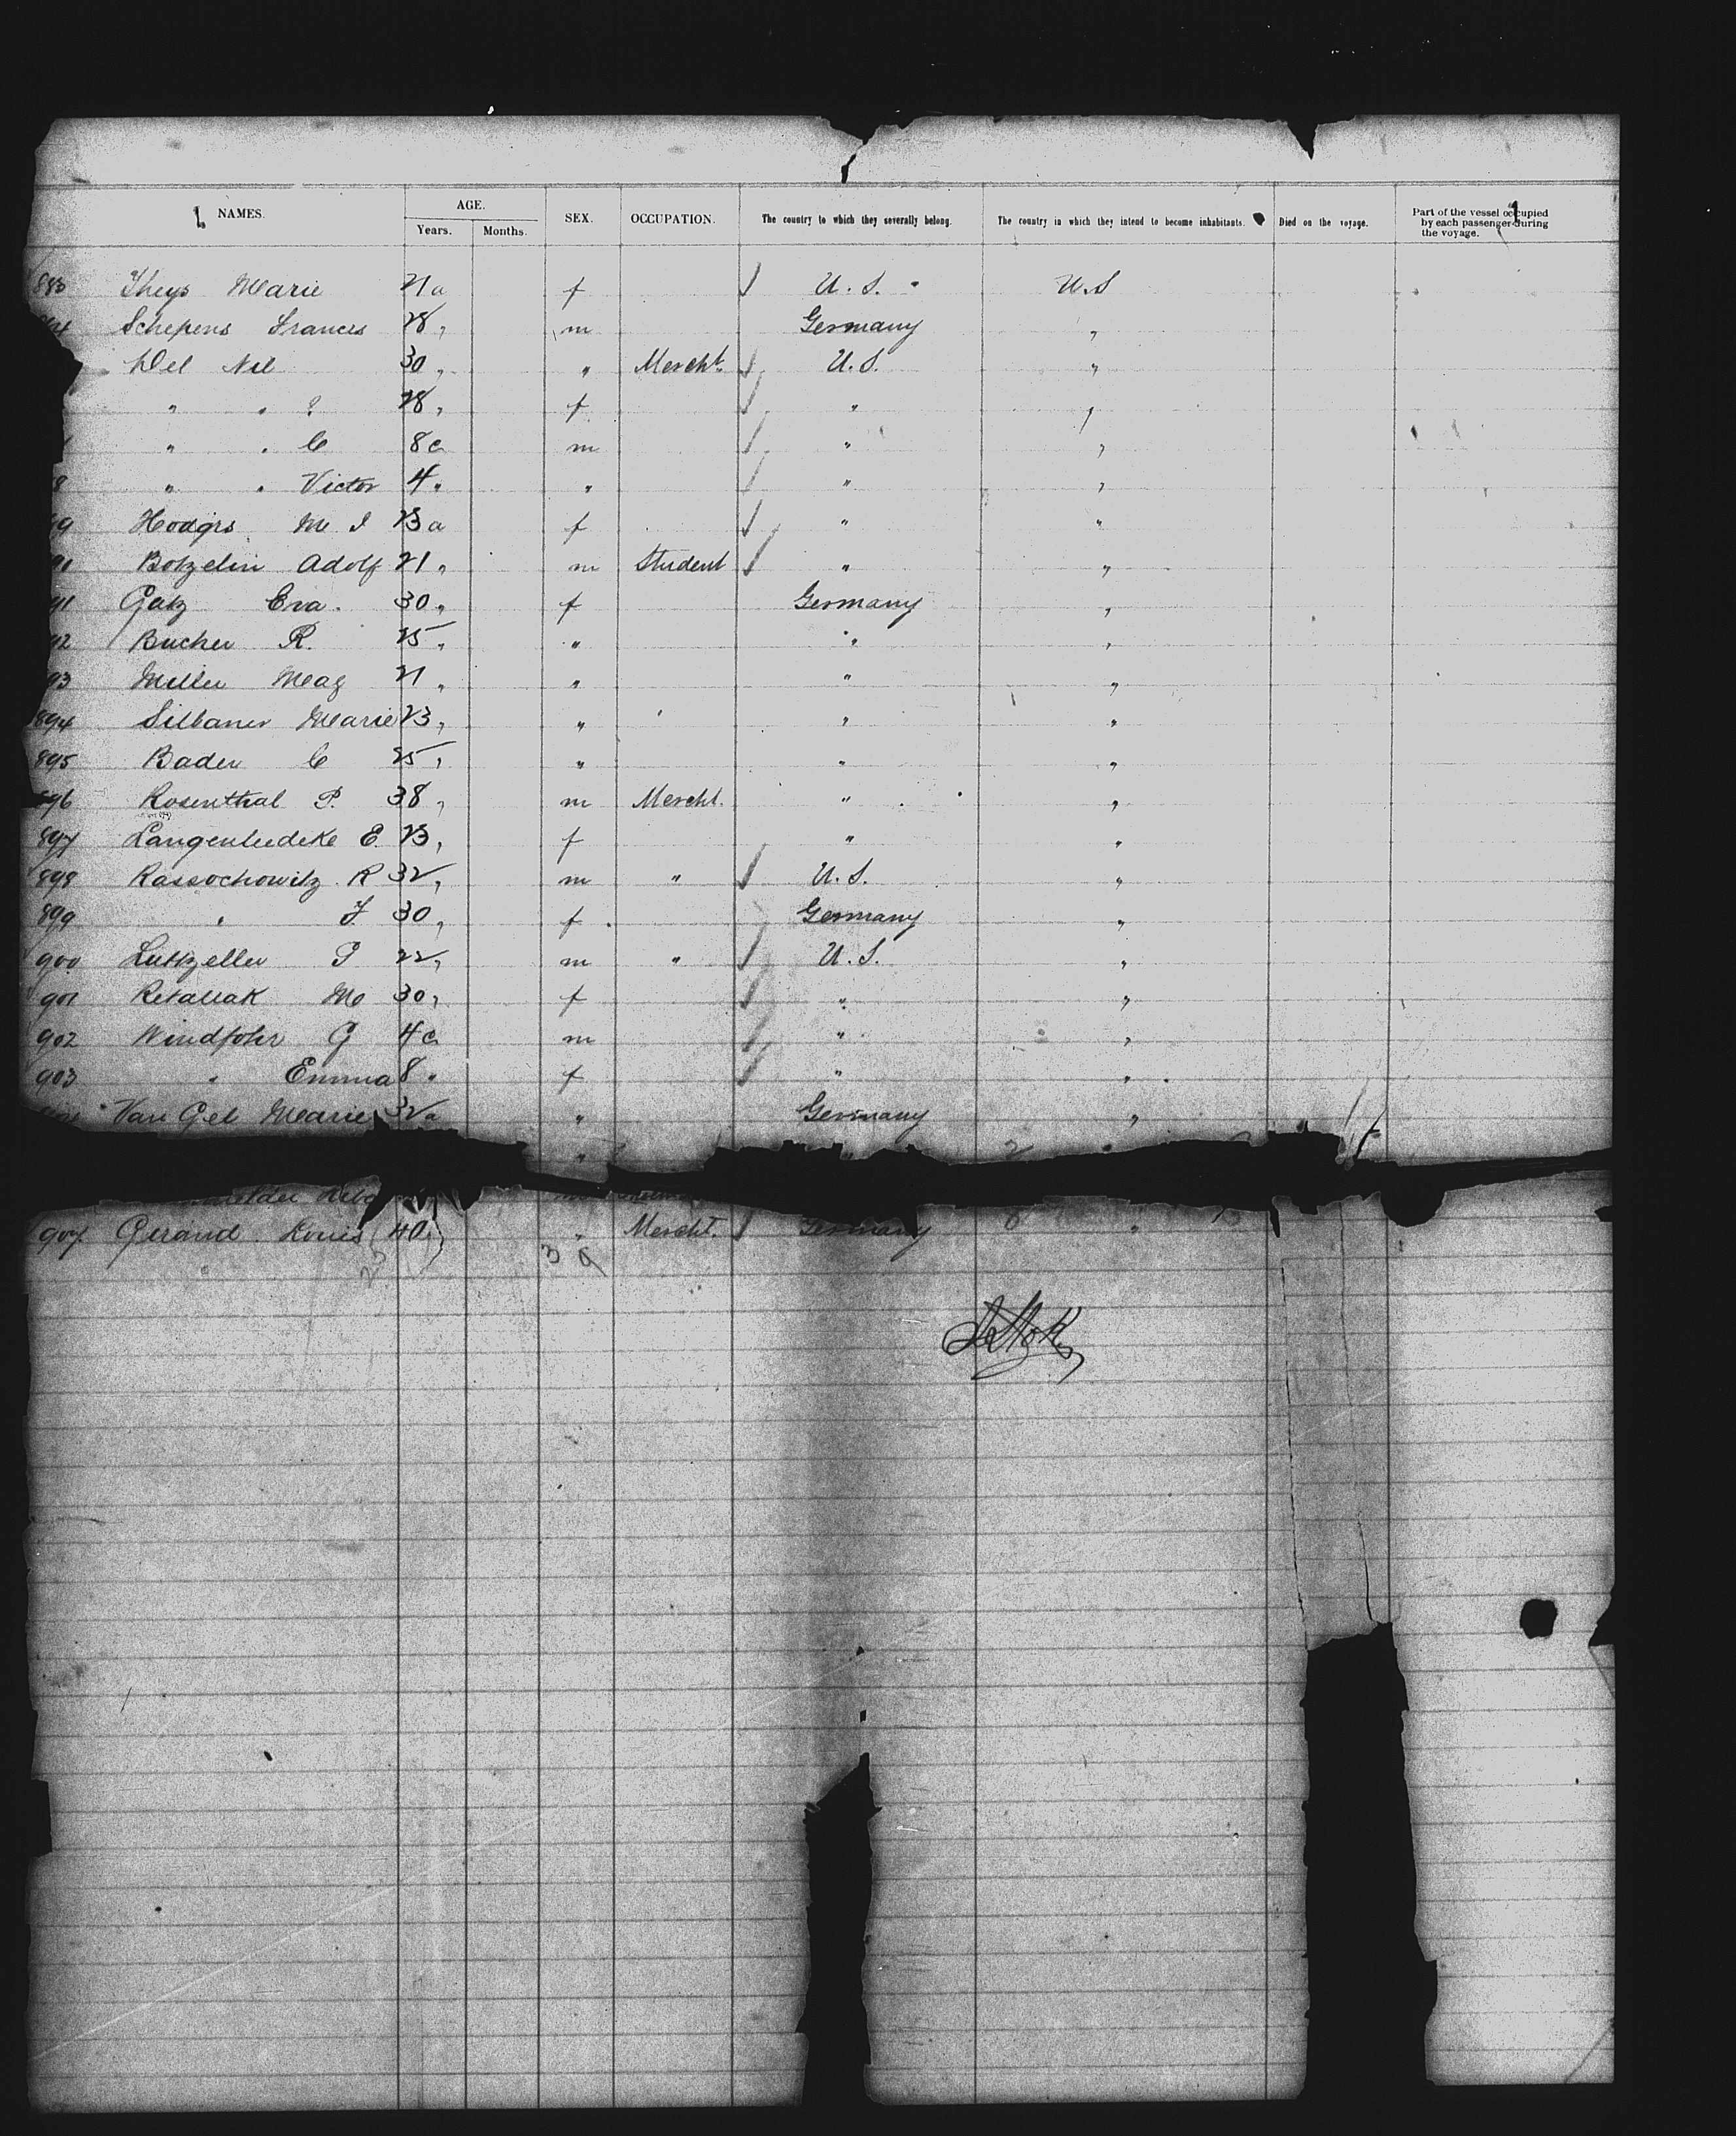 NAMES. AGE. SEX. OCCUPATION. The country to which they severally belong. The country in which they intend to become inhabitants. Died on the voyage. Part of the vessel occupied by each passenger during the voyage.
Years. Months.
883 Theys Marie 21 a f U.S. U.S
Schepens Frances 28 " m Germany "
Del Nil 30 " " Mercht. U.S. "
" " ? 28 " f " "
" " C 8 c m " "
8 " " Victor 4 " " " "
89 Hodgrs M. I 23 a f " "
90 Botzelin Adolf 21 " m Student " "
91 Gatz Eva. 30 " f Germany "
92 Bucher R. 25 " " " "
93 Miller Mag 21 " " " "
894 Silbaner Marie 23 " " " "
895 Bader C 25 " " " "
896 Rosenthal P. 38 " m Mercht. " "
897 Langenludeke E. 23 " f " "
898 Rassochowitz R 32 " m " U.S. "
899 " F 30 " f Germany "
900 Lutkzeller P 22 " m " U.S. "
901 Retallak M 30 " f " "
902 Windfohr G 4 c m " "
903 " Emma 8 " f " "
Van Gel Marie 32 a " Germany "
" " 2
907 Gerand Louis 40 " " Mercht. Germany "
3 9